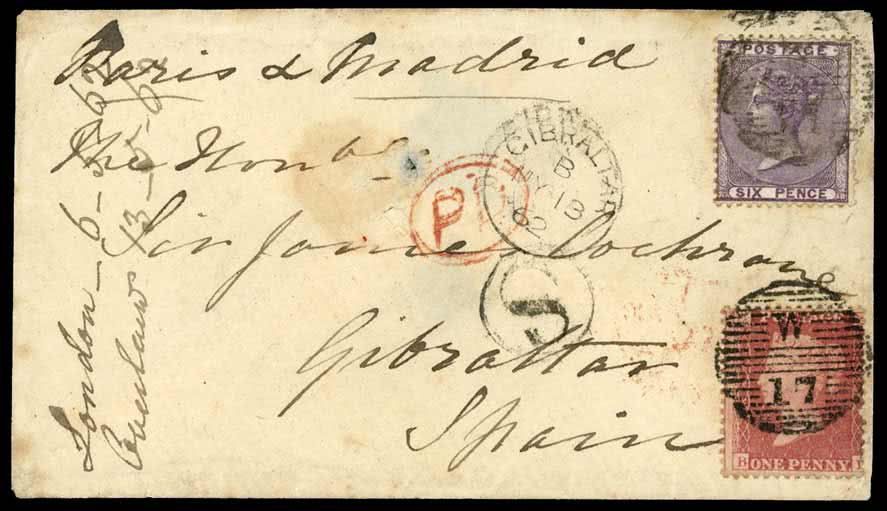 Paris & Madrid
The Honble
Sir James Cochrane
Gibraltar
Spain
London _ 6_5_62
13_5_62
PD
GIBRALTAR
B
MY 13
62
POSTAGE
SIX PENCE
W
17
B ONE PENNY